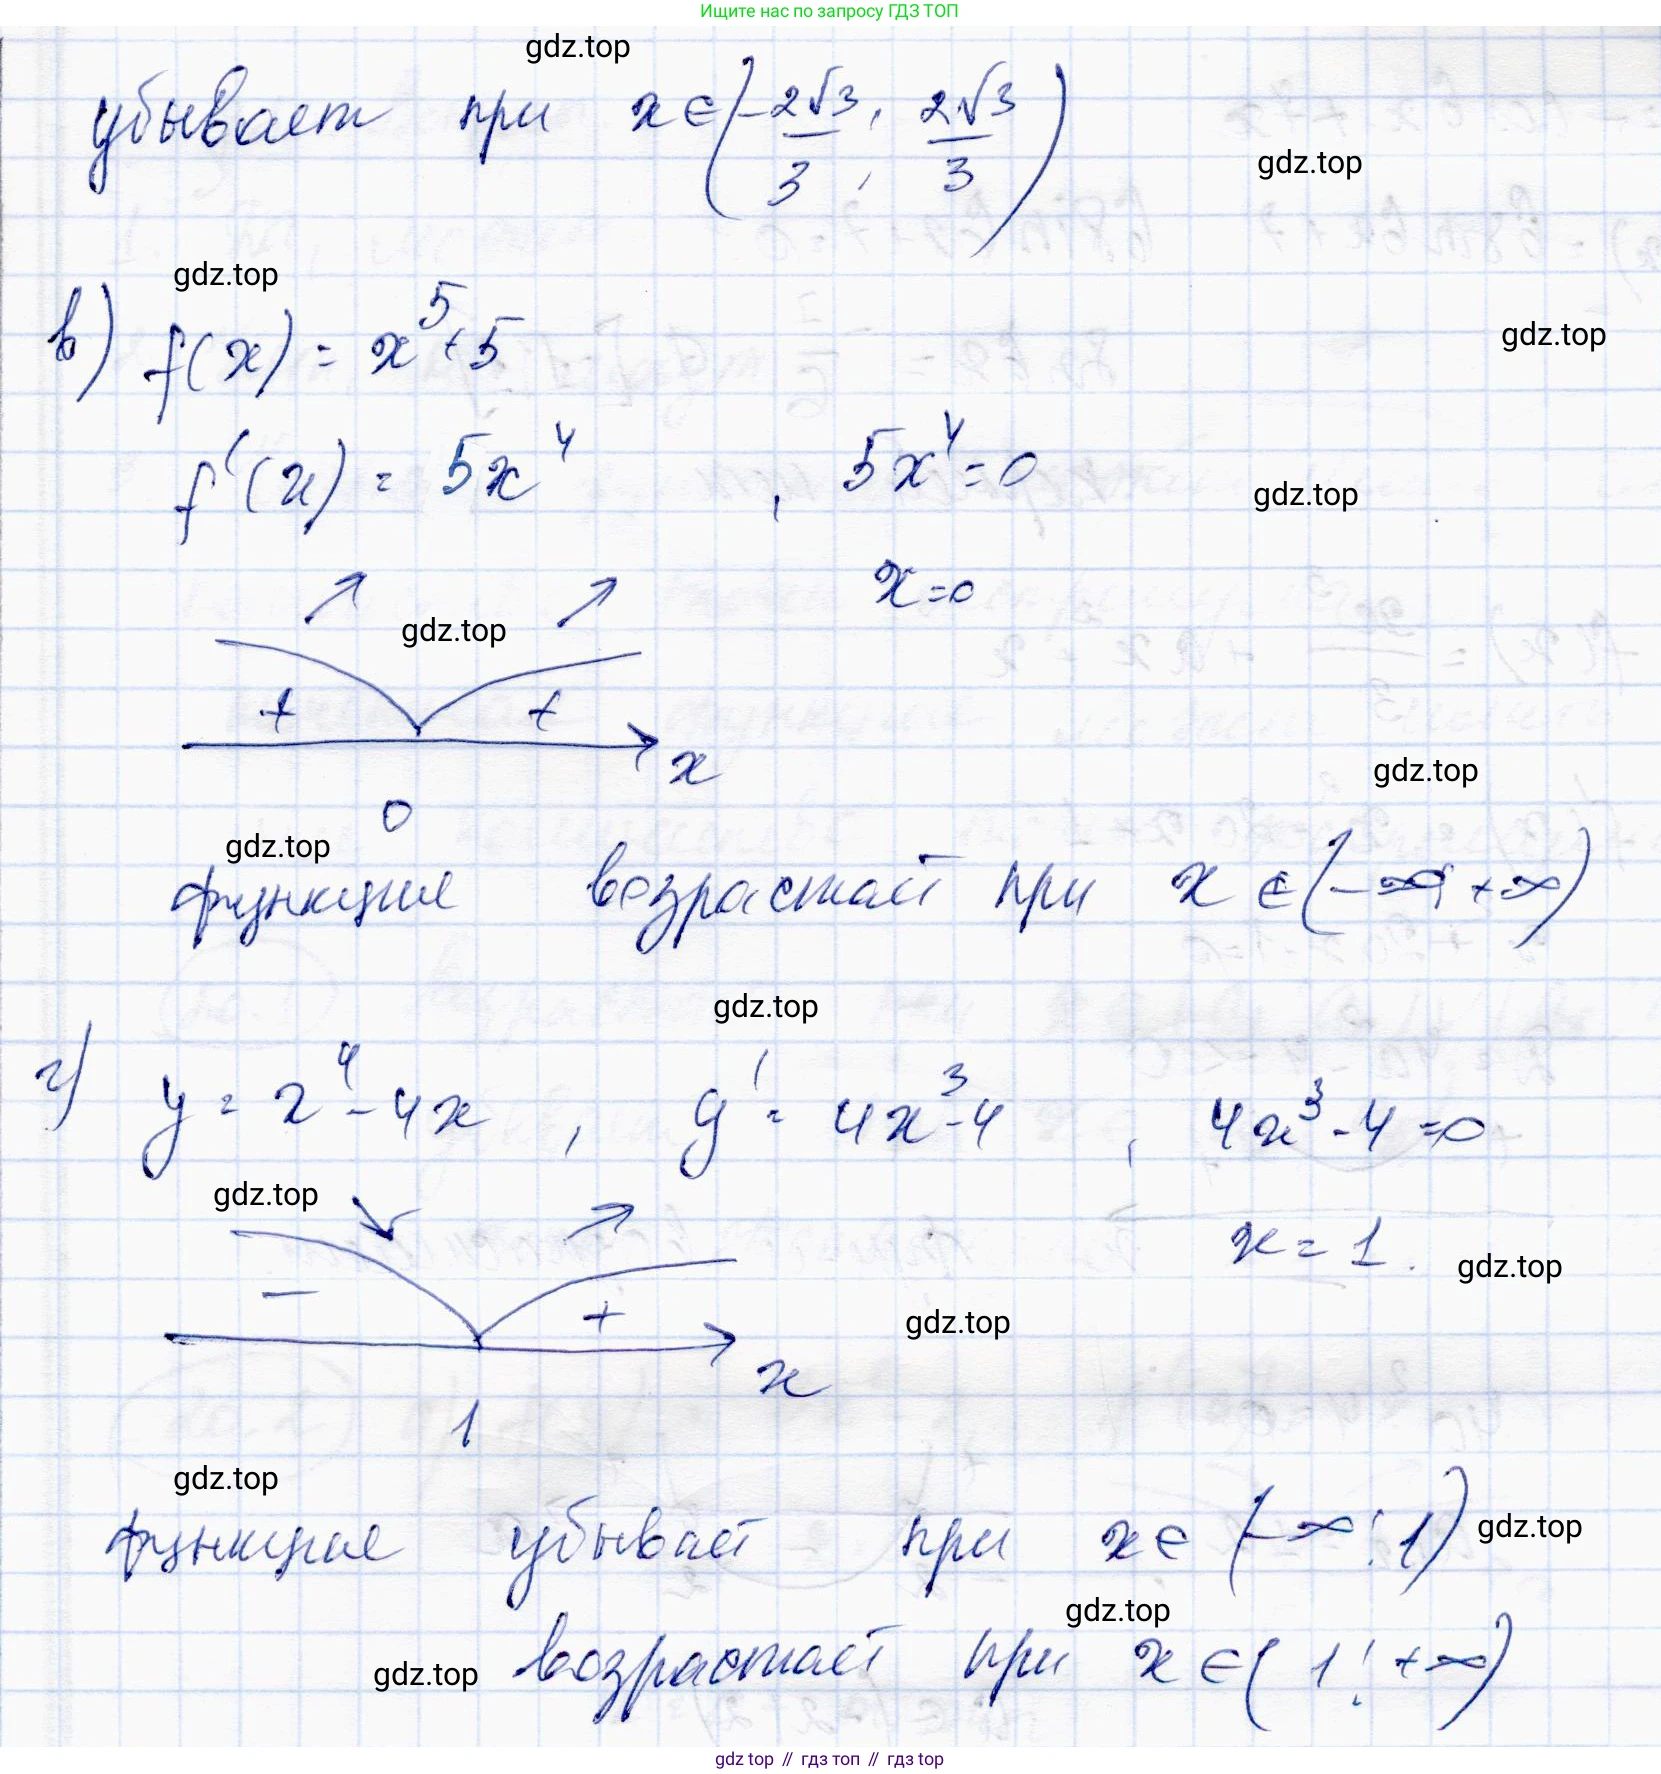 Ищите нас по запросу ГДЗ ТОП
gdz.top
убывает при x ∈ (-2√3/3; 2√3/3)
gdz.top
gdz.top
в) f(x) = x⁵+5
gdz.top
f'(x) = 5x⁴, 5x⁴=0
gdz.top
x=0
gdz.top
+ +
x
gdz.top
0
gdz.top
функция возрастает при x ∈ (-∞; +∞)
gdz.top
г) y = x⁴-4x, y' = 4x³-4, 4x³-4=0
gdz.top
x = 1.
gdz.top
- +
gdz.top
x
1
gdz.top
функция убывает при x ∈ (-∞; 1)
gdz.top
gdz.top
возрастает при x ∈ (1; +∞)
gdz.top
gdz top // гдз топ // gdz top